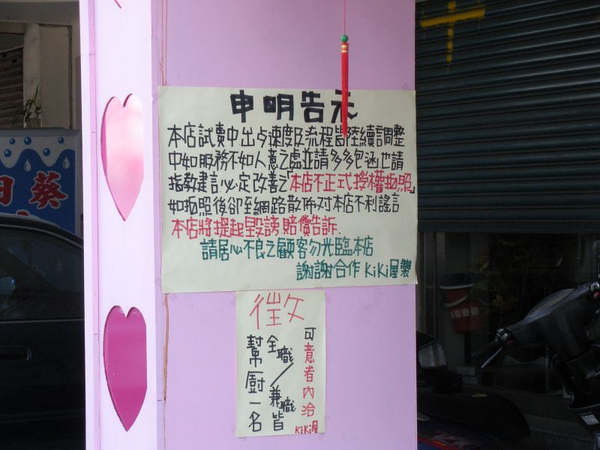 申明告示
本店試賣中出占速度及流程皆陸續調整
中如服務不如人意之處並請多多包涵也請
指教建言必定改善之「本店不正式授權拍照」
如拍照後卻至網路散佈对本店不利謠言
本店將提起毀謗賠償告訴.
請居心不良之顧客勿光臨本店
謝謝合作 KiKi屋製
徵
全職/兼職皆可
幫廚一名
意者內洽
KiKi屋
葵